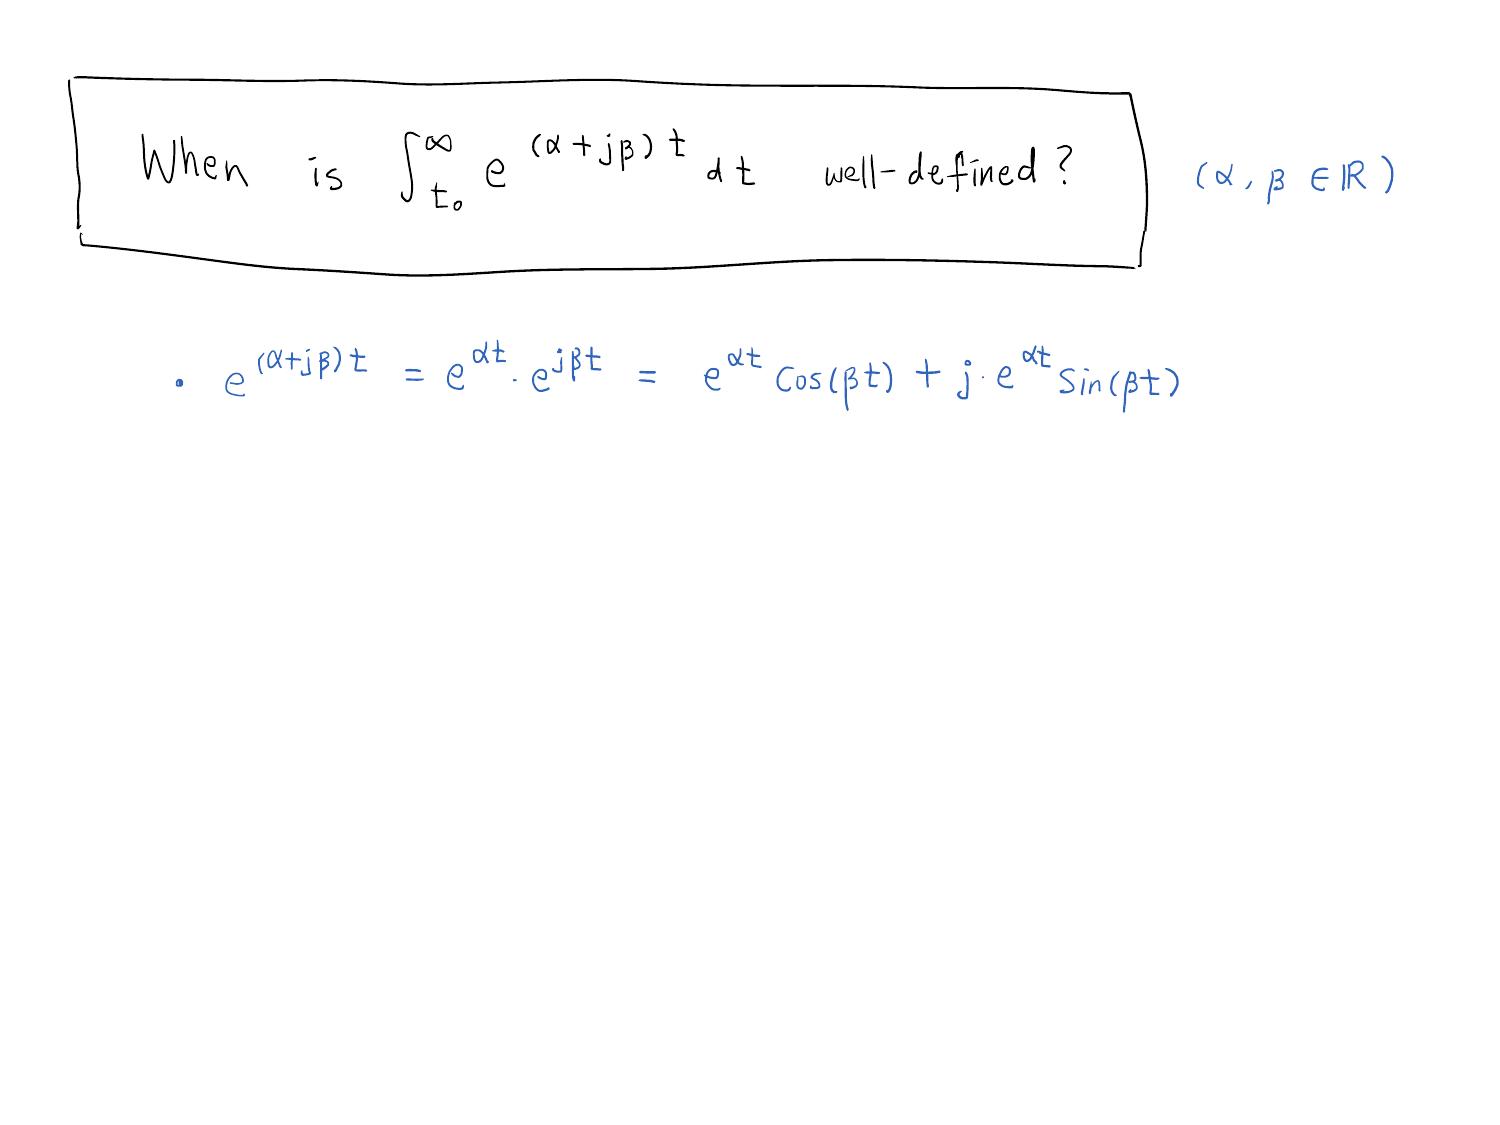 When is ∫_{t₀}^{∞} e^{(α+jβ)t} dt well-defined? (α, β ∈ ℝ)
• e^{(α+jβ)t} = e^{αt} · e^{jβt} = e^{αt} Cos(βt) + j · e^{αt} Sin(βt)